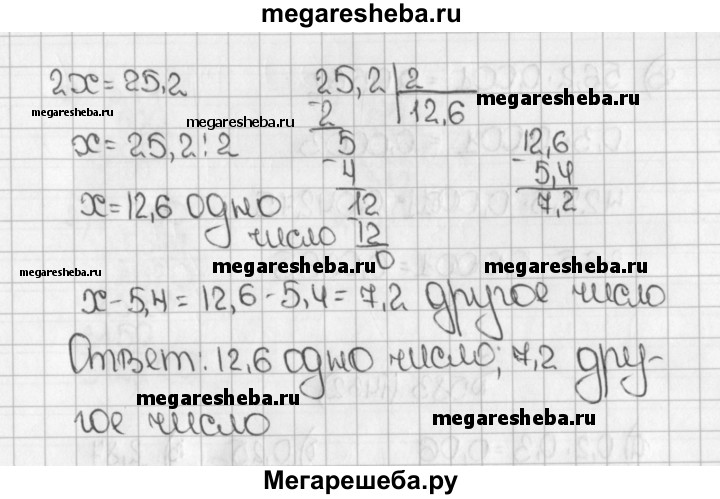 megaresheba.ru
2x = 25,2
25,2 | 2
megaresheba.ru
megaresheba.ru
- 2
12,6
megaresheba.ru
x = 25,2 : 2
5
12,6
- 4
- 5,4
x = 12,6 одно
12
7,2
число
12
0
megaresheba.ru
megaresheba.ru
megaresheba.ru
x - 5,4 = 12,6 - 5,4 = 7,2 другое число
Ответ: 12,6 одно число; 7,2 дру-
megaresheba.ru
гое число
megaresheba.ru
Мегарешеба.ру